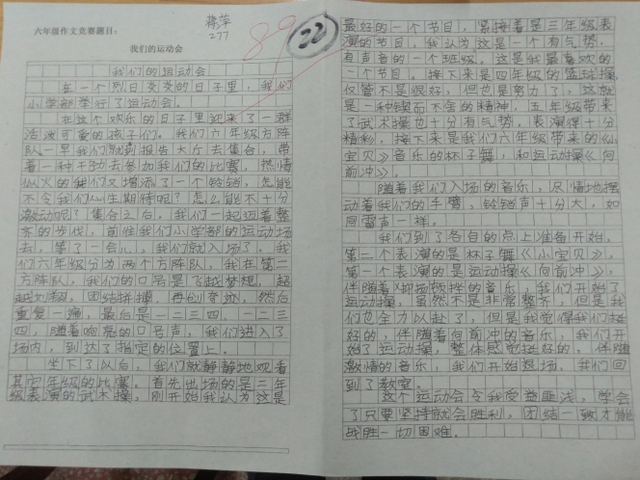 六年级作文竞赛题目:
277
89
22
我们的运动会
我们的运动会
在一个烈日炎炎的日子里,我们
小学部举行了运动会。
在这个欢乐的日子里迎来了一群
活波可爱的孩子们。我们六年级方阵
队一早我们就到报告大厅去集合,带
着一种干劲去参加我们的比赛,热情
似火的我们又增添了一个铃铛,怎能
不令我们心生期待呢?怎么能不十分
激动呢?集合之后,我们一起迈着整
齐的步伐,前往我们小学部的运动场
去,等了一会儿,我们就入场了。我
们六年级分为两个方阵队,我在第二
方阵队,我们的口号是了越梦想,起
越刘翔,团结拼搏,再创奇迹,然后
重复一遍,最后是一二三四,一二三
四,随着响亮的口号声,我们进入了
场内,到达了指定的位置上。
坐下了以后,我们就静静地观看
其它年级的比赛,首先出场的是二年
级表演的武术操,刚开始我认为这是
最好的一个节目,紧接着是三年级表
演的节目,我认为这是一个有气势,
有声音的一个班级。这是我最喜欢的
一个节目。接下来是四年级的篮球操,
仅管不是很好,但也是努力了,这就
是一种锲而不舍的精神,五年级带来
了武术操也十分有气势,表演得十分
精彩,接下来是我们六年级带来的《小
宝贝》音乐的杯子舞,和运动操《向
前冲》。
随着我们入场的音乐,尽情地摆
动着我们的手臂,铃铛声十分大,如
同雷声一样。
我们到了各自的点上准备开始,
第二个表演的是杯子舞《小宝贝》,
第一个表演的是运动操《向前冲》,
伴随着抑扬顿挫的音乐,我们开始了
运动操,虽然不是非常整齐,但是我
们也全力以赴了,但是我觉得我们挺
好的,伴随着向前冲的音乐,我们开
始了运动操,整体感觉挺好的,伴随
激情的音乐,我们开始退场,我们回
到了教室。
这个运动会令我受益匪浅,学会
了只要坚持就会胜利,团结一致才能
战胜一切困难。